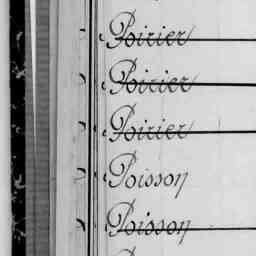 Poirier
Poirier
Poirier
Poisson
Poisson